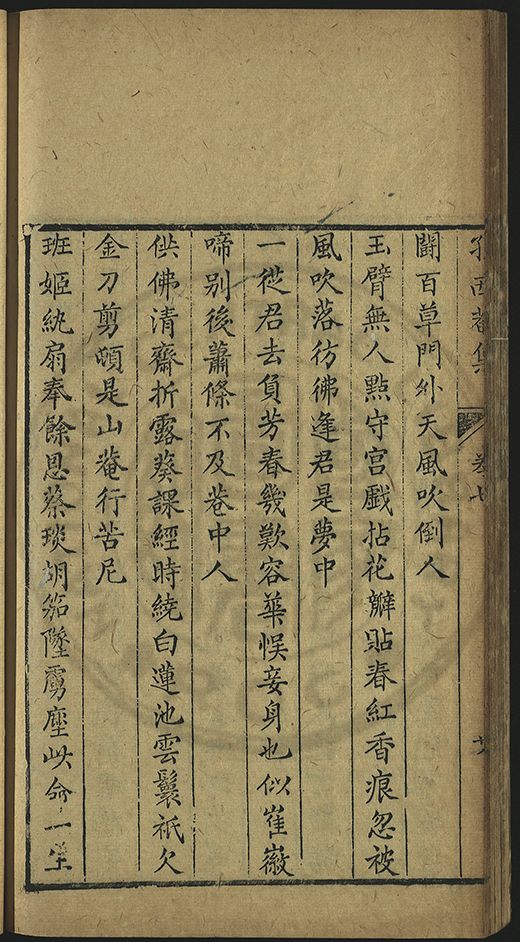 孫西菴集 卷七
鬪百草門外天風吹倒人
玉臂無人點守宮戲拈花瓣貼春紅香痕忽被
風吹落彷彿逢君是夢中
一從君去負芳春幾歎容華悮妾身也似崔徽
啼别後蕭條不及巷中人
供佛清齋折露葵課經時繞白蓮池雲鬟祇欠
金刀剪頓是山菴行苦尼
班姬紈扇奉餘恩蔡琰胡笳墮虜塵此命一生